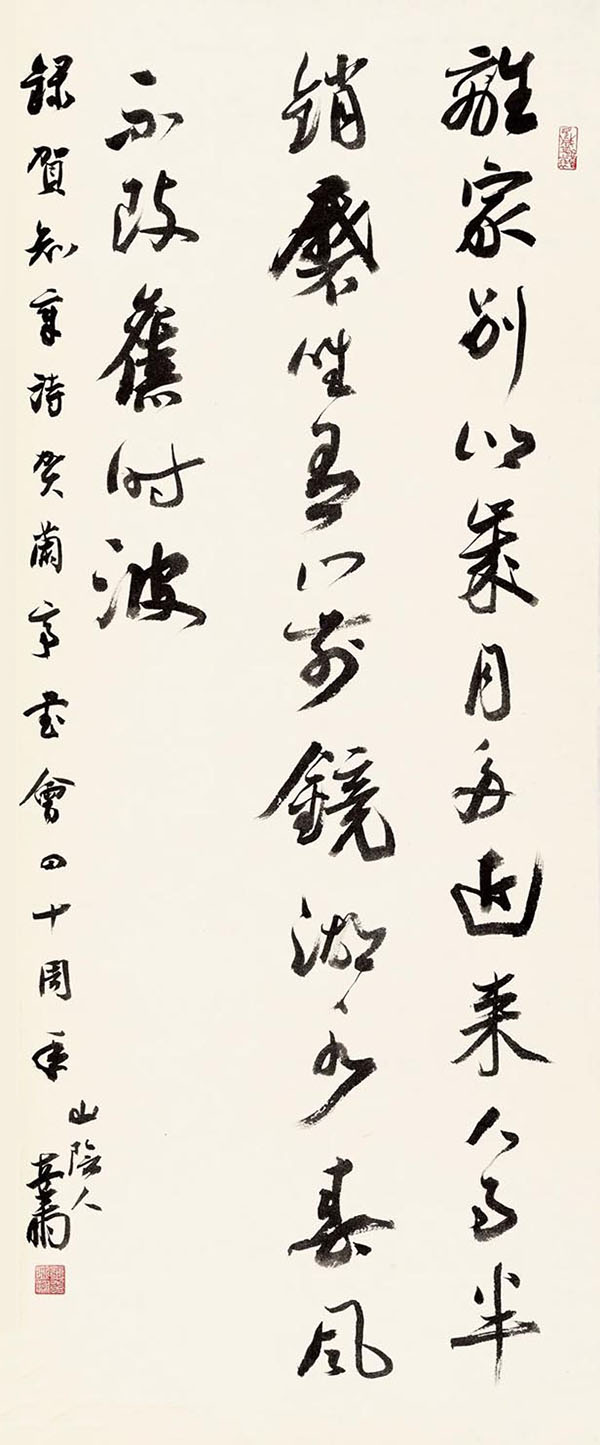 離家别以歲月多近来人事半
銷磨唯有门前鏡湖水春風
不改舊时波
録賀知章詩賀蘭亭書會四十周年
山陰人